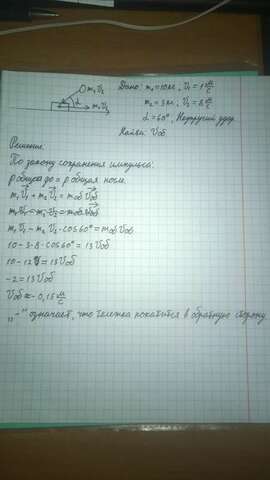 m₂ V₂ Дано: m₁=10кг, V₁=1 м/с
α m₁V₁ m₂=3кг, V₂=8 м/с
α=60°, Неупругий удар
Найти: Vоб
Решение.
По закону сохранения импульса:
p общая до = p общая после.
m₁V₁ + m₂V₂ = mоб Vоб
m₁V₁ - m₂V₂ = mоб Vоб
m₁V₁ - m₂V₂ · cos60° = mоб Vоб
10 - 3·8·cos60° = 13Vоб
10 - 12 = 13Vоб
-2 = 13Vоб
Vоб ≈ - 0,15 м/с
„-" означает, что тележка покатится в обратную сторону.